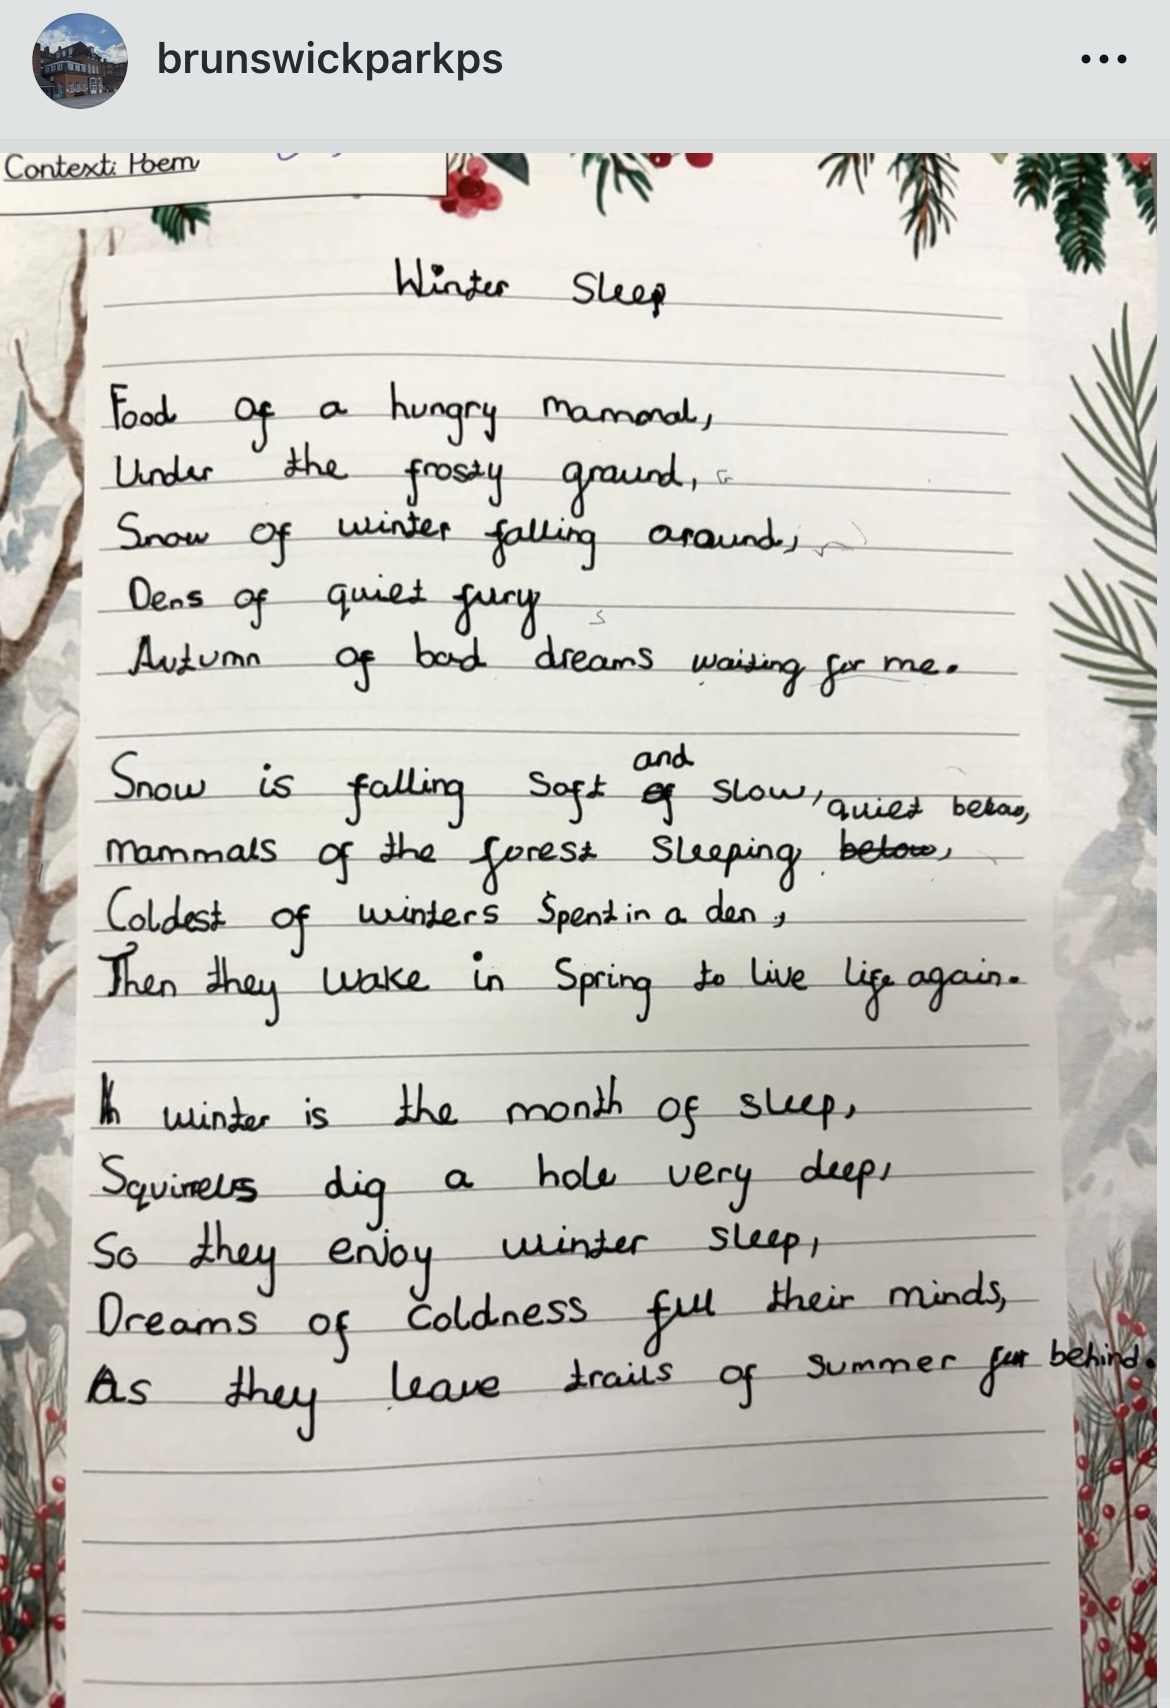 brunswickparkps
Context: Poem
Winter Sleep
Food of a hungry mammal,
Under the frosty ground,
Snow of winter falling around,
Dens of quiet fury
Autumn of bad dreams waiting for me.
and
Snow is falling soft of slow, quiet below,
mammals of the forest sleeping below,
Coldest of winters spent in a den,
Then they wake in Spring to live life again.
In winter is the month of sleep,
Squirrels dig a hole very deep,
So they enjoy winter sleep,
Dreams of coldness fill their minds,
As they leave trails of summer far behind.